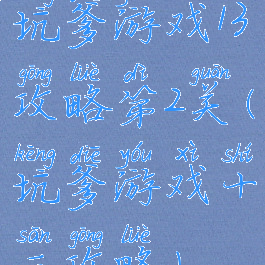 坑爹游戏13
gōng lüè dì guān
攻略第2关(
kēng diē yóu xì shí
坑爹游戏十
sān gōng lüè
三攻略)